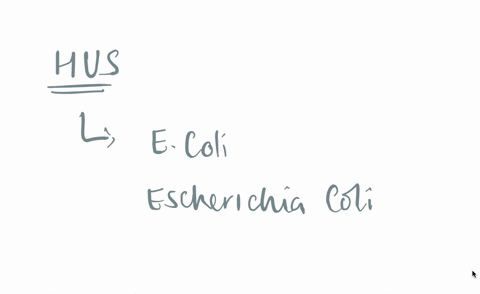 HUS
E. Coli
Escherichia Coli